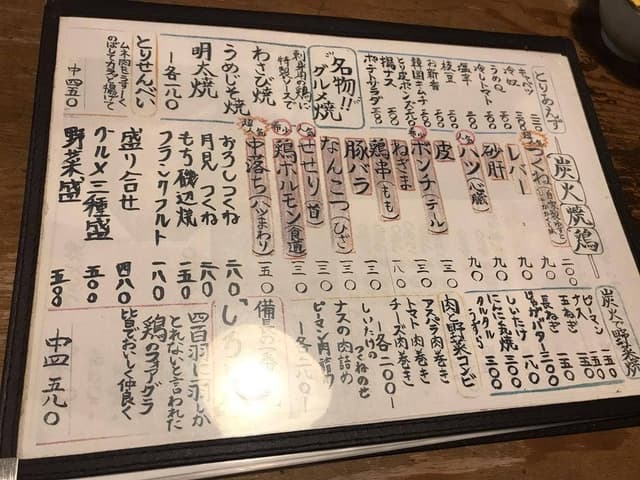 とりあえず
キャベツ
冷奴
うのQ
冷しトマト
塩辛
枝豆
お新香
韓国キムチ
とり皮ポンズ 二八〇
揚ナス
ポテトサラダ
名物!!グルメ焼
利弁内の鶏に
特製ソースで
わさび焼
うめじそ焼
明太焼
一各一八〇
とりせんべい
ムネ肉をうすーく
のばしてカラッと揚げて
中 四五〇
炭火焼鶏
つくね 二〇〇
レバー 九〇
砂肝 九〇
ハツ(心臓) 九〇
皮 一三〇
ボンチリ(テール) 一三〇
ねぎま 一八〇
鶏串(もも) 一三〇
豚バラ 一三〇
なんこつ(ひざ) 一三〇
せせり(首) 一三〇
鶏ホルモン(食道) 一三〇
中落ち(ハツまわり) 一五〇
おろしつくね 二六〇
月見つくね 二八〇
もち磯辺焼 一五〇
フランクフルト 一八〇
盛り合せ 四八〇
グルメ三種盛 五〇〇
野菜盛 五〇〇
炭火で野菜焼
ピーマン 一五〇
ナス 一五〇
玉ねぎ 一五〇
長ねぎ 一五〇
じゃがバター 三〇〇
しいたけ 一八〇
にんにく丸焼 三〇〇
タルタル
うずら
肉と野菜コンビ
アスパラ肉巻き
トマト肉巻き
チーズ肉巻き
一各二〇〇一
しいたけの
つくねのせ
ナスの肉詰め
ピーマン肉詰め
一各二六〇一
備長の一番
しろ
四百羽に一羽しか
とれないと言われた
鶏のフォアグラ
皆でおいしく仲良く
中皿 五八〇